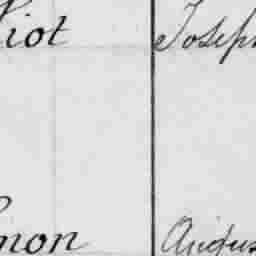 liot Joseph
mon Augus